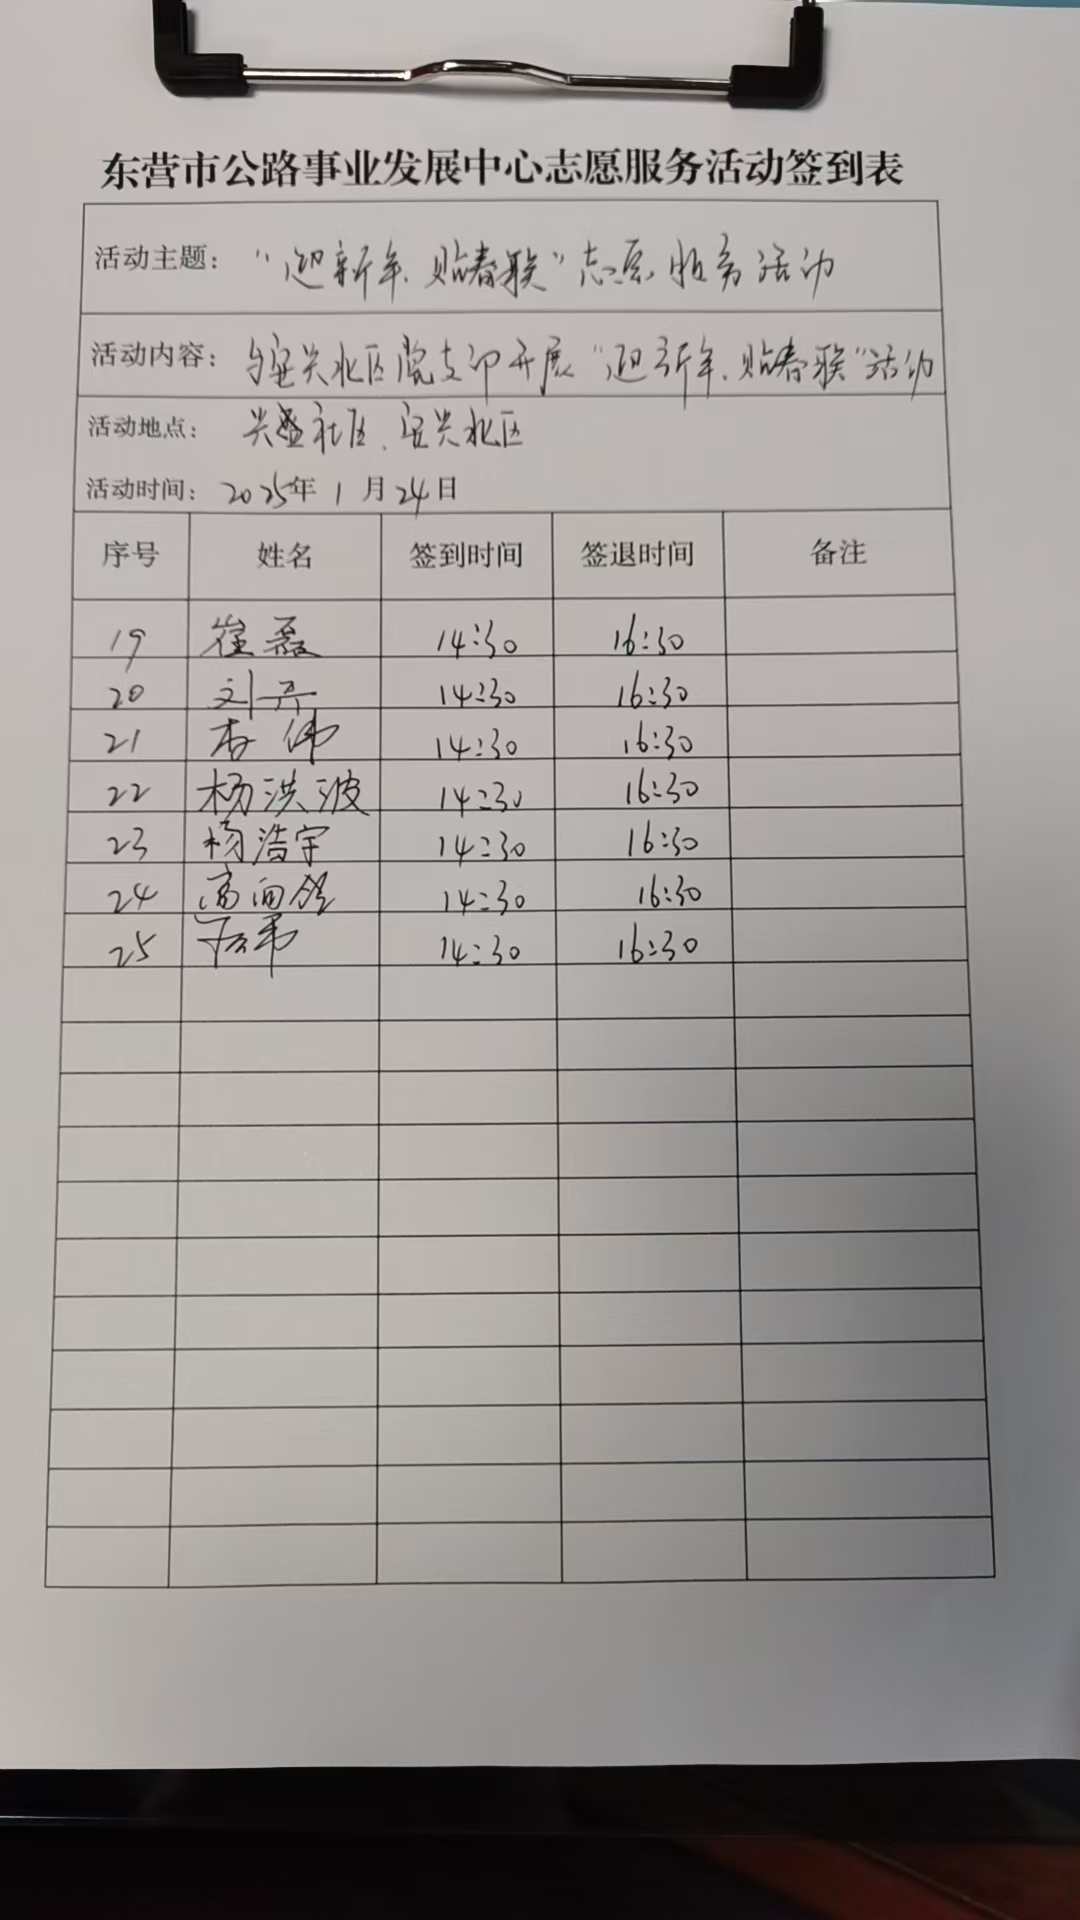 东营市公路事业发展中心志愿服务活动签到表
活动主题："迎新年、贴春联"志愿服务活动
活动内容：与宝兴北区党支部开展"迎新年、贴春联"活动
活动地点：兴盛社区、宝兴北区
活动时间：2025年1月24日
序号 姓名 签到时间 签退时间 备注
19 崔磊 14:30 16:30
20 14:30 16:30
21 14:30 16:30
22 杨洪波 14:30 16:30
23 杨浩宇 14:30 16:30
24 14:30 16:30
25 14:30 16:30